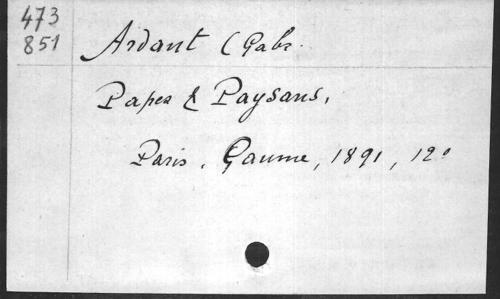 473
851
Ardant (Gabr.
Papes & Paysans,
Paris. Gaume, 1891, 12°